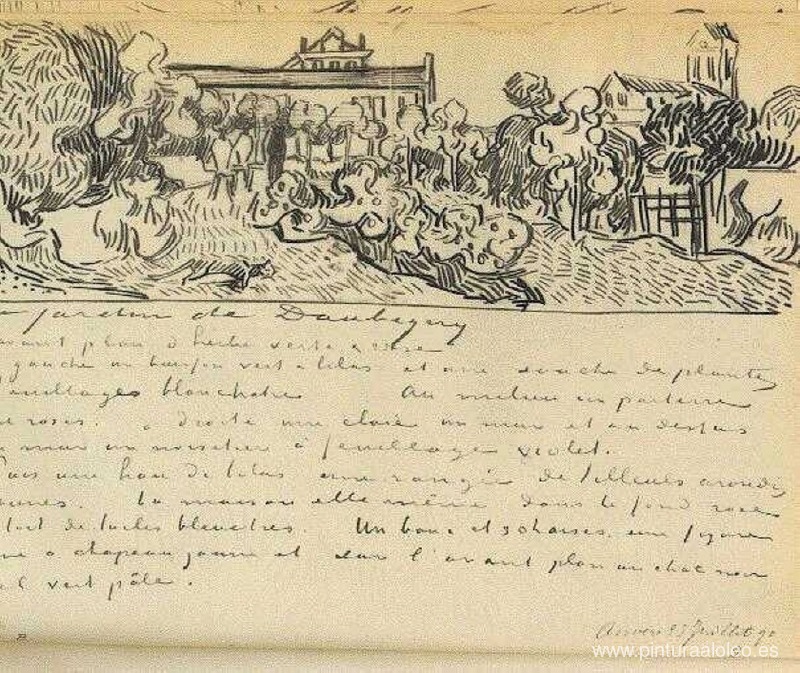 jardin de Daubigny
avant plan d'herbe verte & rose
gauche un buisson vert & lilas et une souche de plantes
feuillages blanchatres Au milieu un parterre
roses. à droite une claie un mur et au dessus
mur un noisetier à feuillage violet.
Puis une haie de lilas une rangée de tilleuls arrondis
jaunes. la maison elle même dans le fond rose
toit de tuiles bleuâtres. Un banc et 3 chaises. une figure
à chapeau jaune et sur l'avant plan un chat noir
vert pâle.
Auvers 23 Juillet 90
www.pinturaaloleo.es